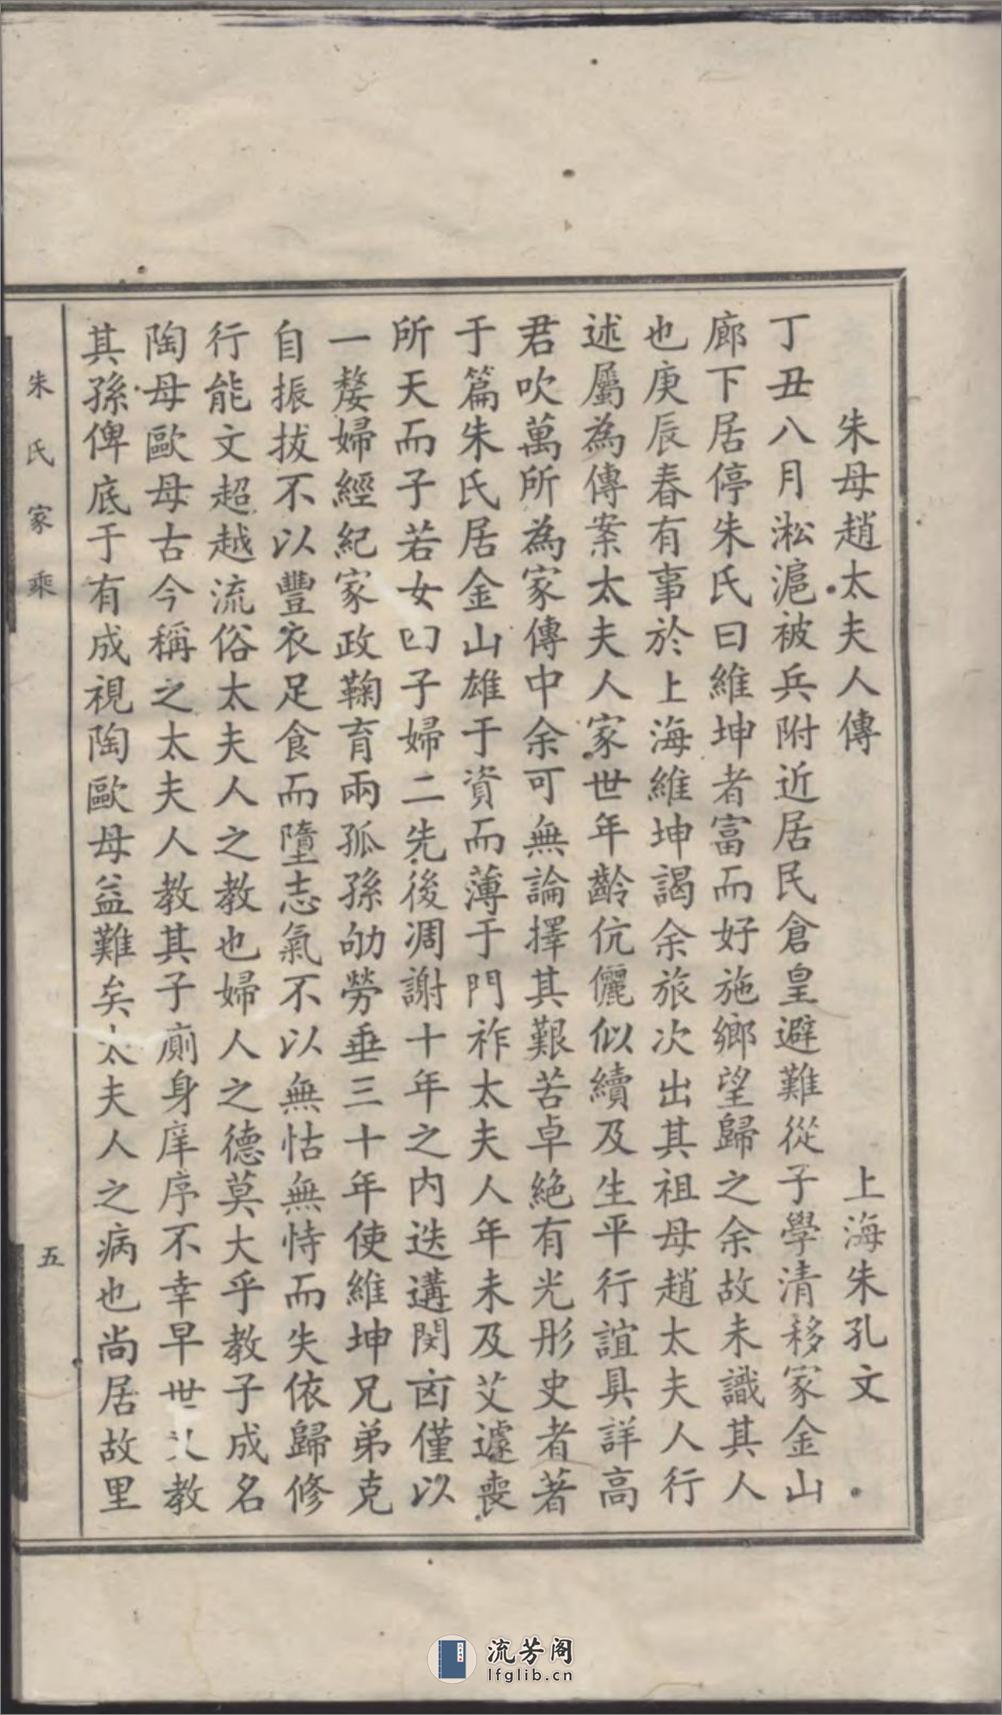 朱母趙太夫人傳
上海朱孔文
丁丑八月淞滬被兵附近居民倉皇避難從子學清移家金山
廊下居停朱氏曰維坤者富而好施鄉望歸之余故未識其人
也庚辰春有事於上海維坤謁余旅次出其祖母趙太夫人行
述屬為傳案太夫人家世年齡伉儷似續及生平行誼具詳高
君吹萬所為家傳中余可無論擇其艱苦卓絕有光彤史者著
于篇朱氏居金山雄于資而薄于門祚太夫人年未及艾遽喪
所天而子若女曰子婦二先後凋謝十年之內迭遘閔凶僅以
一嫠婦經紀家政鞠育兩孤孫劬勞垂三十年使維坤兄弟克
自振拔不以豐衣足食而墮志氣不以無怙無恃而失依歸修
行能文超越流俗太夫人之教也婦人之德莫大乎教子成名
陶母歐母古今稱之太夫人教其子廁身庠序不幸早世教
其孫俾底于有成視陶歐母益難矣太夫人之病也尚居故里
朱氏家乘
五
流芳阁
lfglib.cn